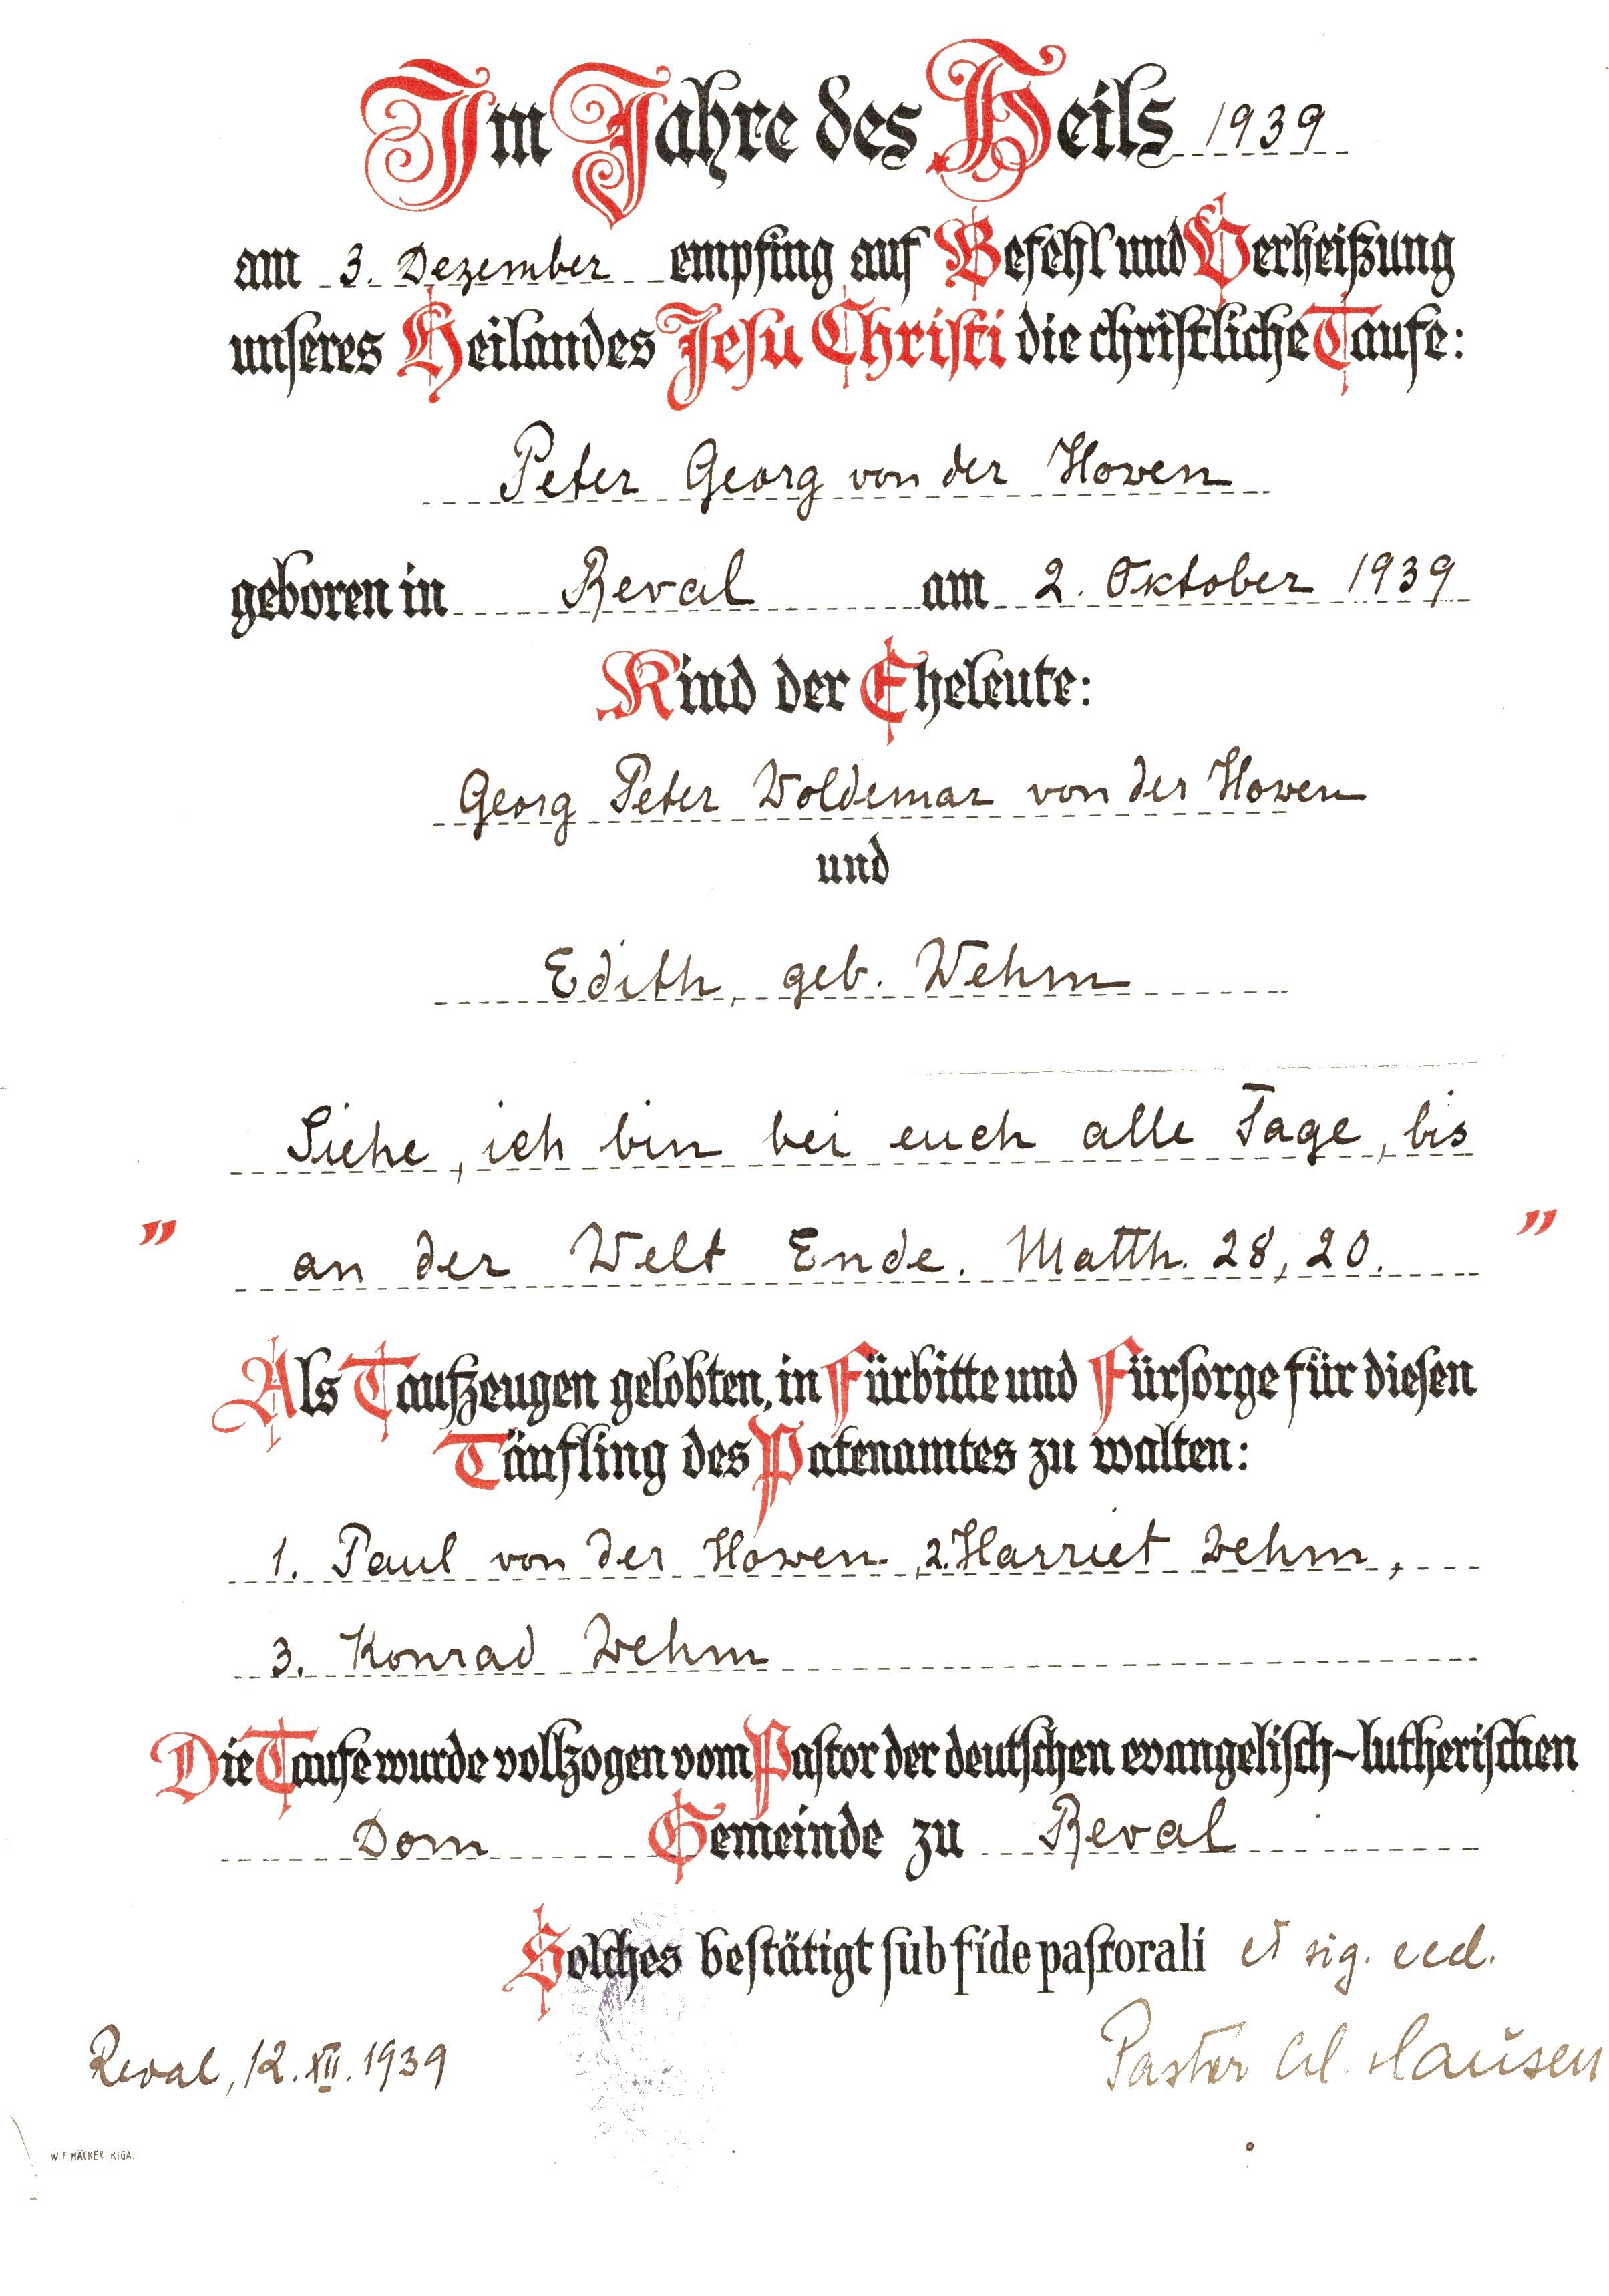 Im Jahre des Heils 1939
am 3. Dezember empfing auf Befehl und Verheißung
unseres Heilandes Jesu Christi die christliche Taufe:
Peter Georg von der Howen
geboren in Reval am 2. Oktober 1939
Kind der Eheleute:
Georg Peter Woldemar von der Howen
und
Edith, geb. Wehm
Siehe, ich bin bei euch alle Tage, bis
" an der Welt Ende. Matth. 28, 20. "
Als Taufzeugen gelobten, in Fürbitte und Fürsorge für diesen
Täufling des Patenamtes zu walten:
1. Paul von der Howen, 2. Harriet Wehm,
3. Konrad Wehm
Die Taufe wurde vollzogen vom Pastor der deutschen evangelisch-lutherischen
Dom Gemeinde zu Reval
Solches bestätigt sub fide pastorali et sig. eccl.
Reval, 12. XII. 1939
Pastor Hausen
W. F. HÄCKER, RIGA.